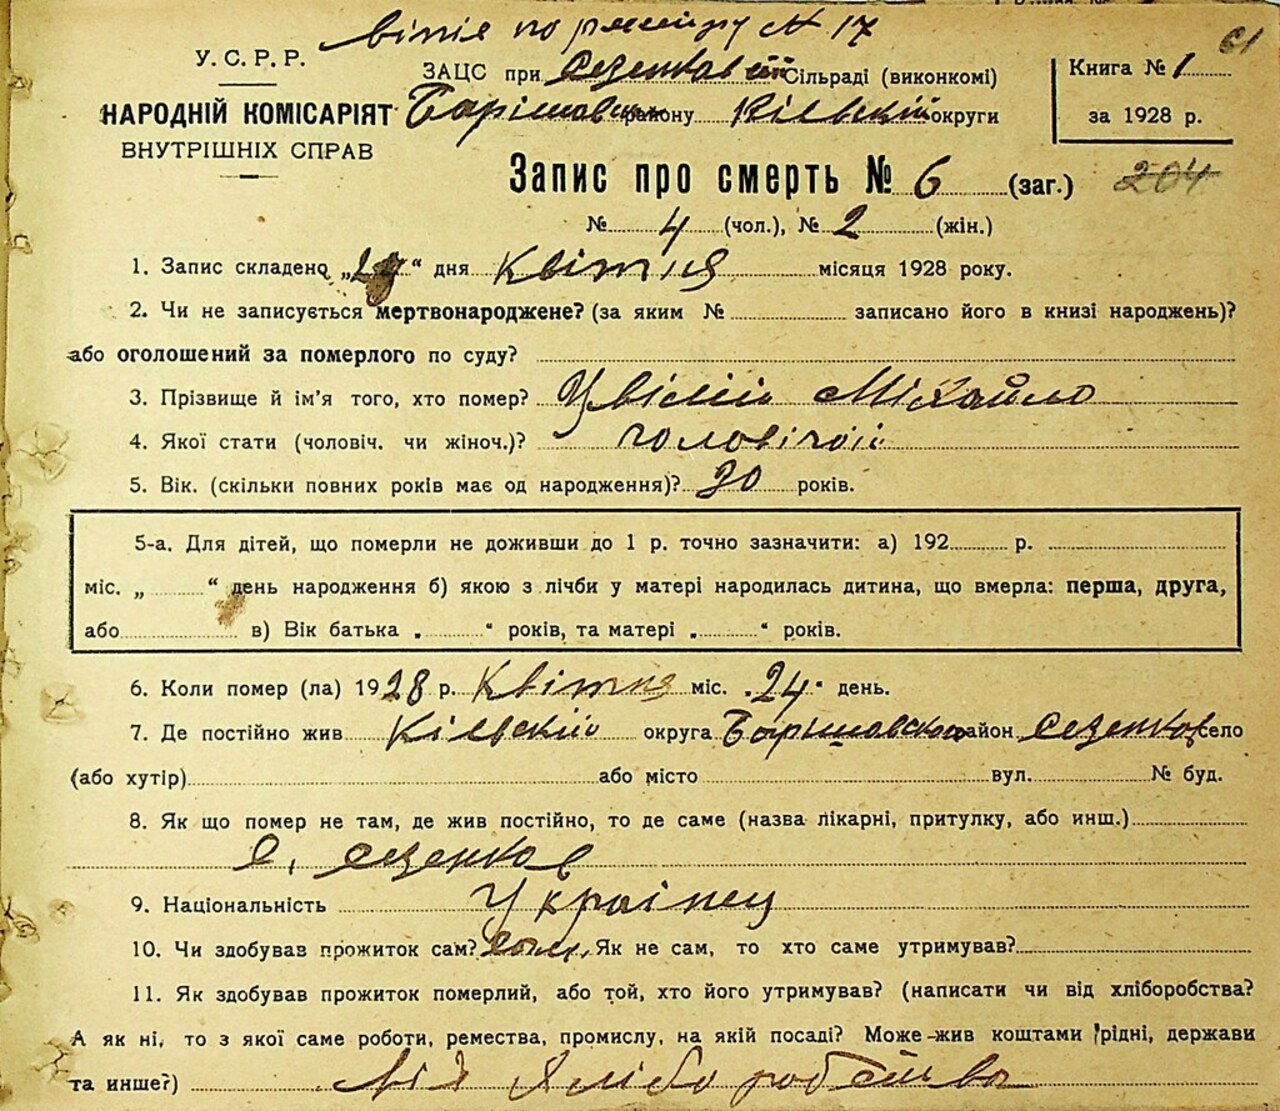 по реєстру № 17
61
У. С. Р. Р.
ЗАЦС при Сезенков Сільраді (виконкомі)
Книга № 1
НАРОДНІЙ КОМІСАРІЯТ
Барішовськ району Кієвскій округи
за 1928 р.
ВНУТРІШНІХ СПРАВ
Запис про смерть № 6 (заг.) 204
№ 4 (чол.), № 2 (жін.)
1. Запис складено „ “ дня Квітня місяця 1928 року.
2. Чи не записується мертвонароджене? (за яким № записано його в книзі народжень)?
або оголошений за померлого по суду?
3. Прізвище й ім'я того, хто помер? Міхайло
4. Якої стати (чоловіч. чи жіноч.)? чоловічої
5. Вік. (скільки повних років має од народження)? 30 років.
5-а. Для дітей, що померли не доживши до 1 р. точно зазначити: а) 192 р.
міс. „ “ день народження б) якою з лічби у матері народилась дитина, що вмерла: перша, друга,
або в) Вік батька „ “ років, та матері „ “ років.
6. Коли помер (ла) 1928 р. Квітня міс. „24“ день.
7. Де постійно жив Кієвскій округа Барішовского район Сезенков село
(або хутір) або місто вул. № буд.
8. Як що помер не там, де жив постійно, то де саме (назва лікарні, притулку, або инш.)
с. Сезенков
9. Національність Українец
10. Чи здобував прожиток сам? сам. Як не сам, то хто саме утримував?
11. Як здобував прожиток померлий, або той, хто його утримував? (написати чи від хліборобства?
А як ні, то з якої саме роботи, ремества, промислу, на якій посаді? Може-жив коштами рідні, держави
та инше?) від хліборобства